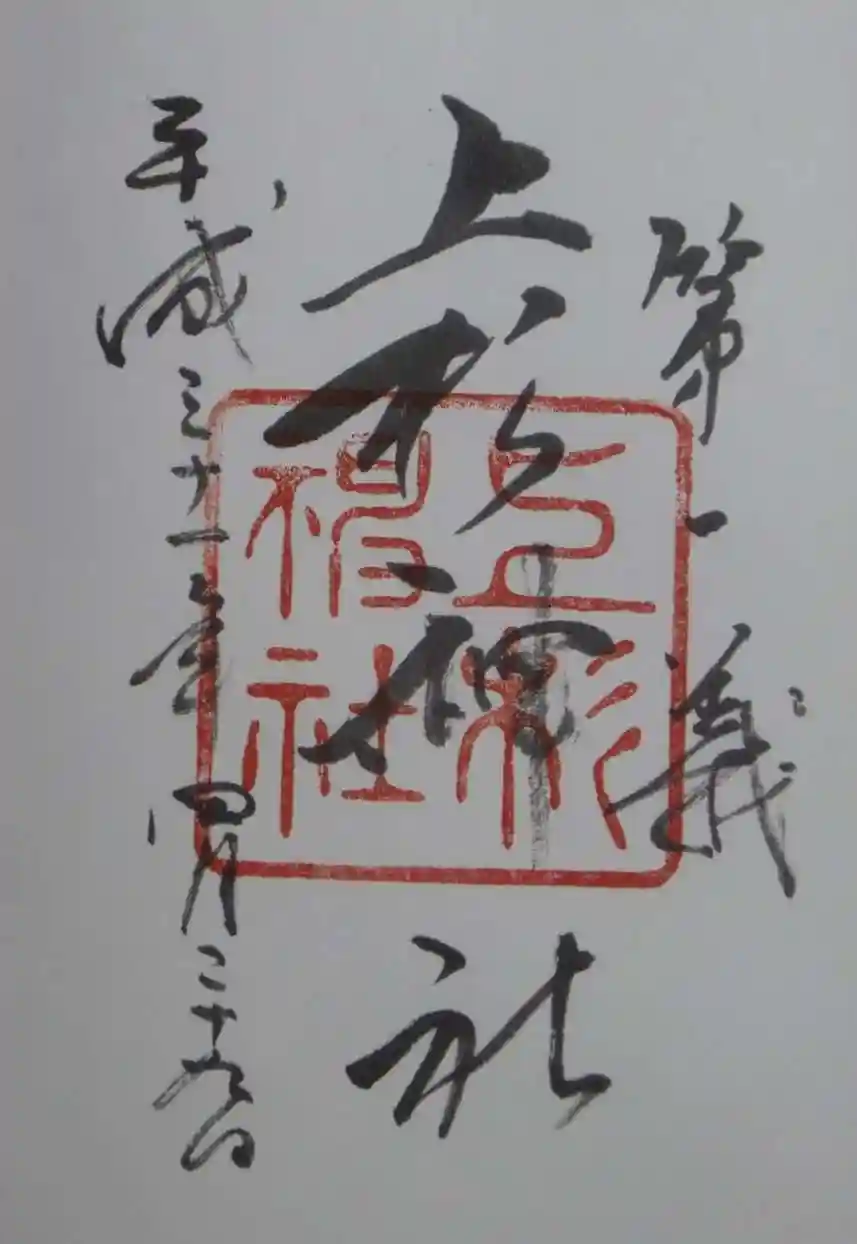 第一義
上杉神社
平成三十一年四月二十九日
上杉神社